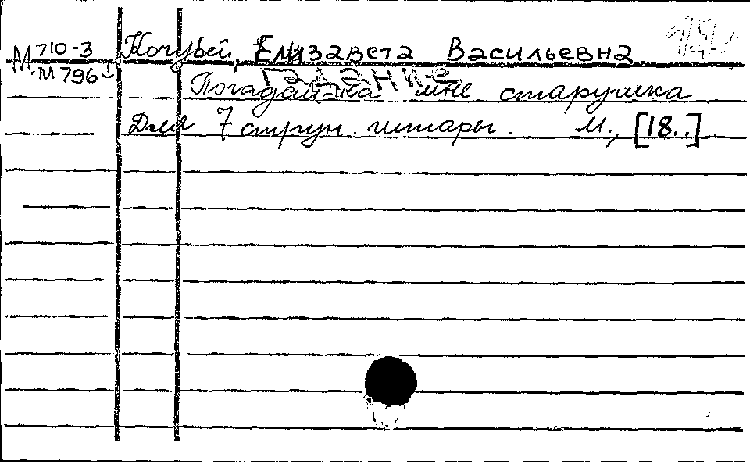 М 710-3 Кочубей, Елизавета Васильевна
М 796
ГАДАНИЕ
Погадай-ка мне старушка
Для 7 струн. гитары. М., [18..]